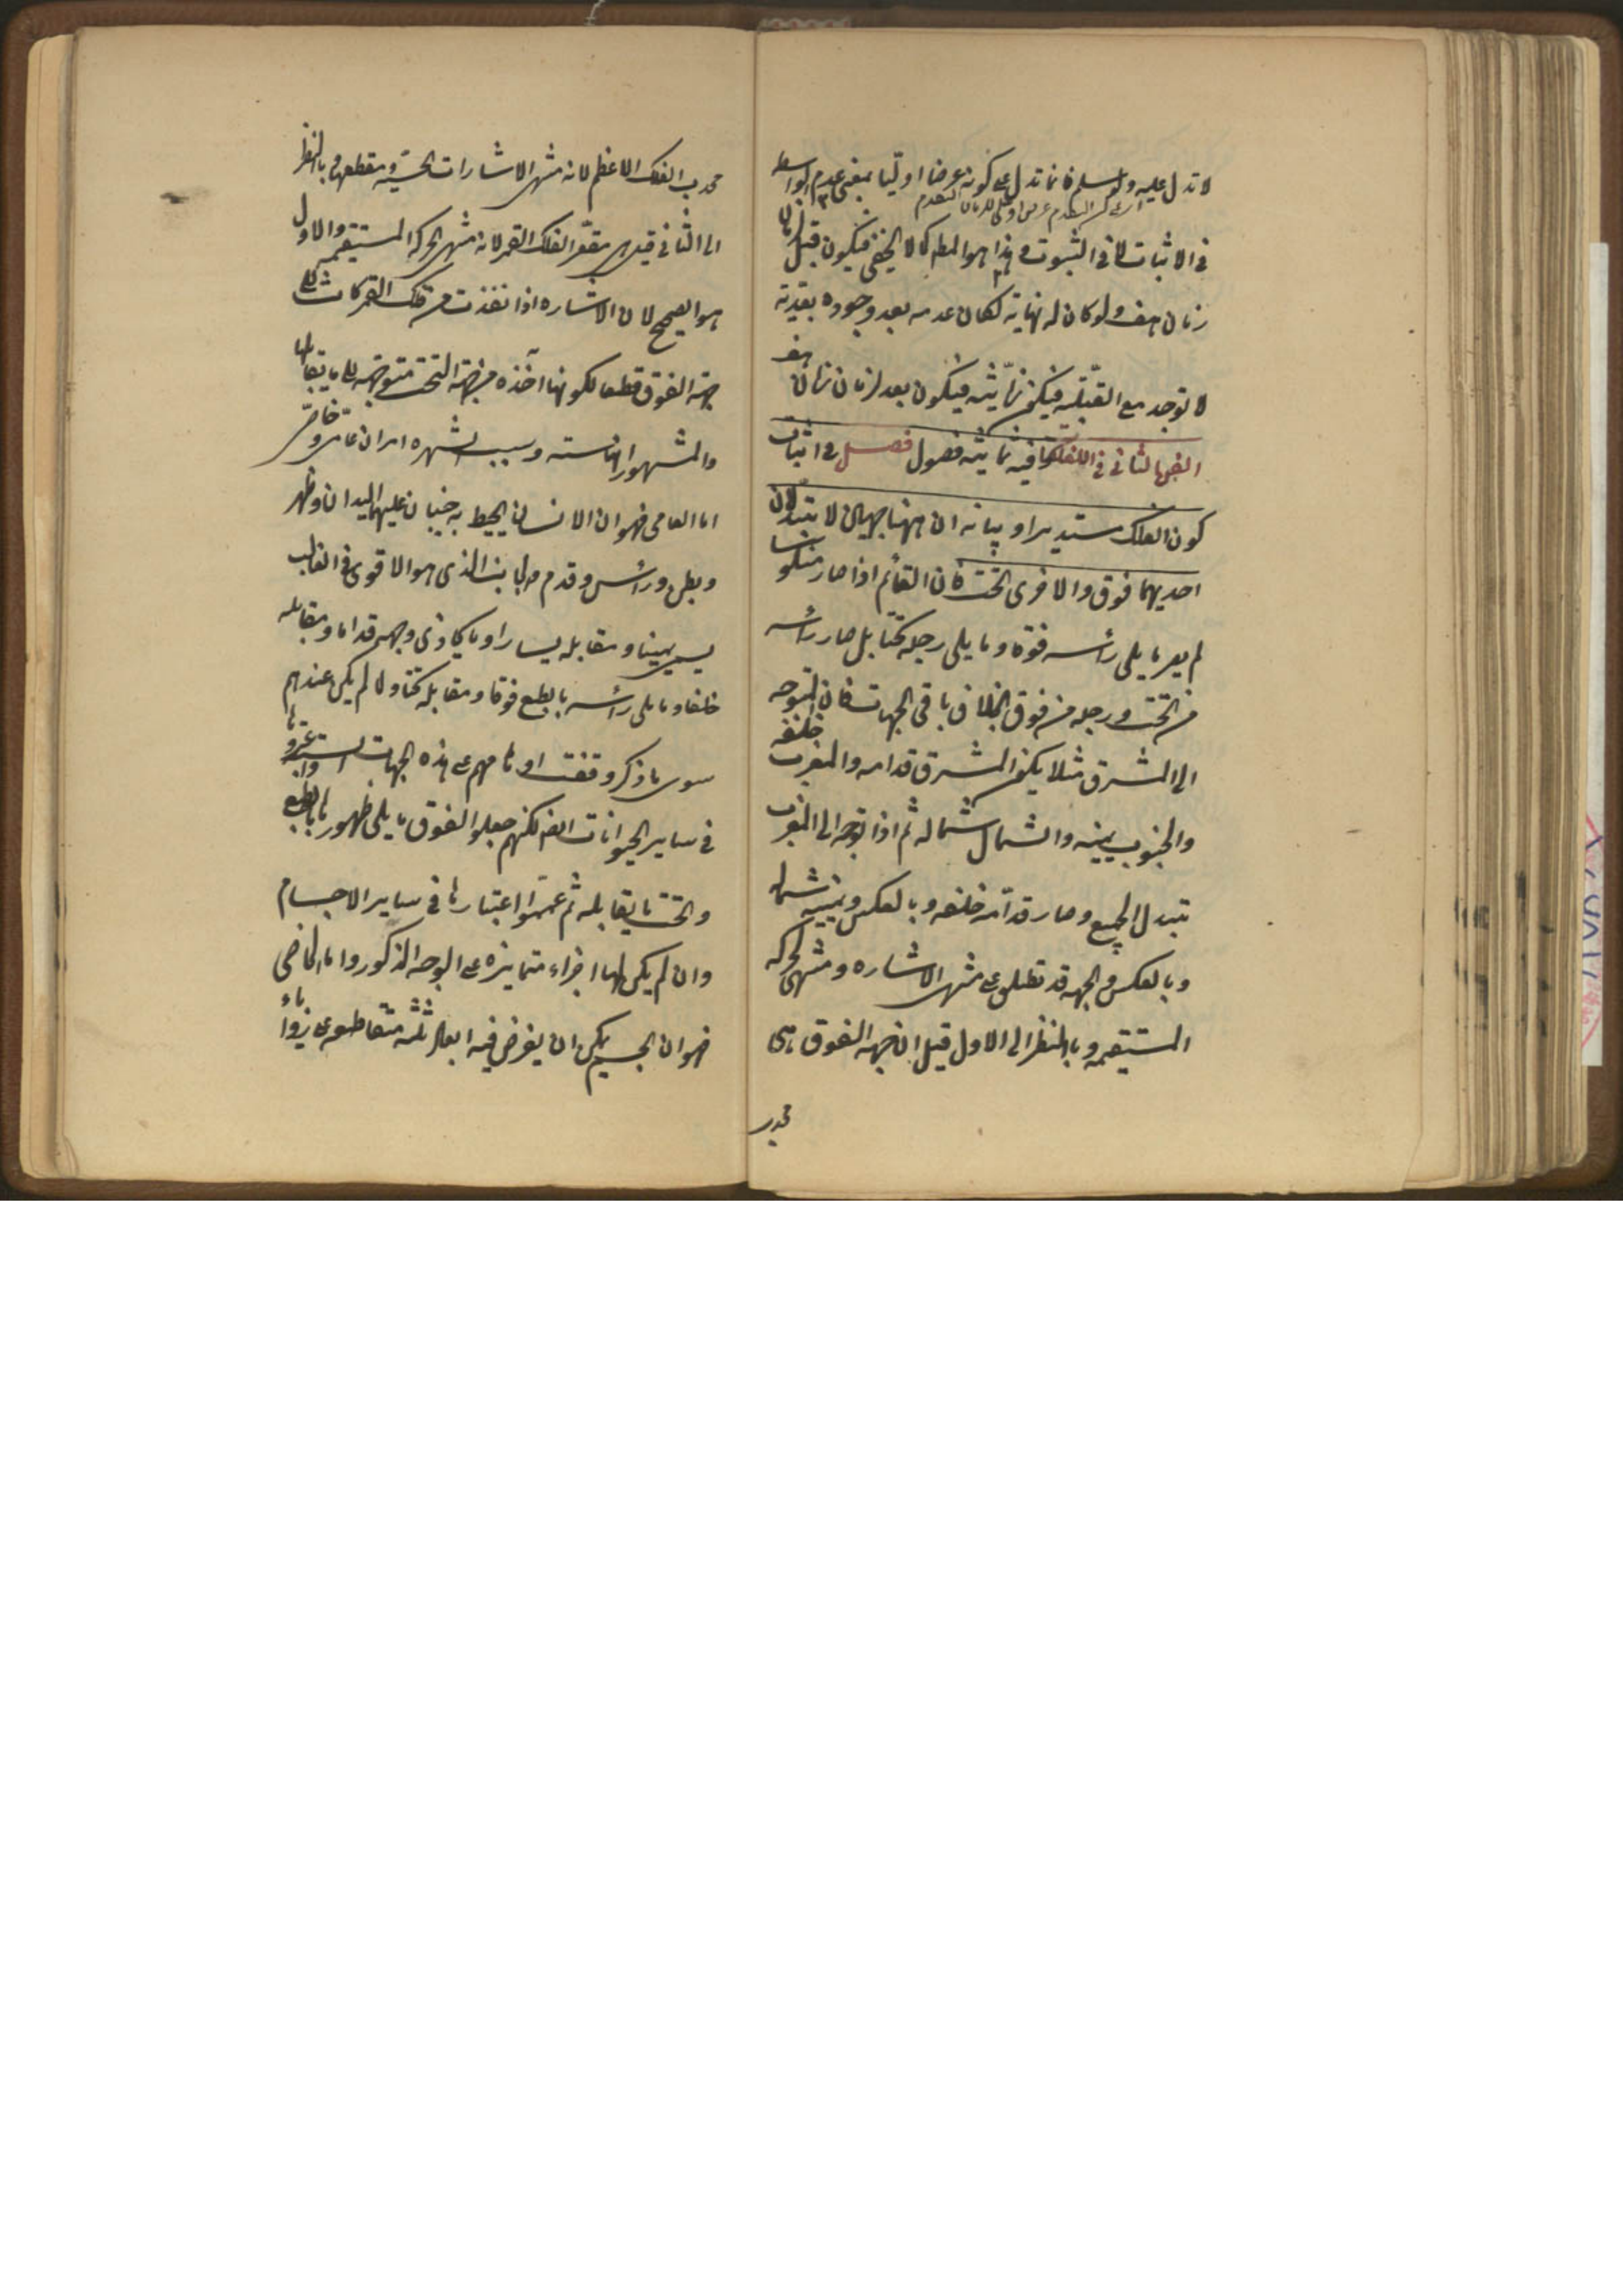 لا تدل عليه ولو سلم فانما تدل على كونه عرضا اوليا بمعنى عدم الواسطه
فى الاثبات لا فى الثبوت وهذا هو المط كما لا يخفى فيكون قبل الزمان
زمان هف ولو كان له نهاية لكان عدمه بعد وجوده بعدية
لا توجد مع القبلية فيكون زمانية فيكون بعد الزمان زمان هف
الفن الثانى فى الفلكيات وفيه ثمانية فصول فصل فى اثبات
كون الفلك مستديرا وبيانه ان ههنا جهتان لا تتبدلان
احديهما فوق والاخرى تحت فان القائم اذا صار منكوسا
لم يصر ما يلى رأسه فوقا وما يلى رجله تحتا بل صار رأسه
من تحت ورجله من فوق بخلاف باقى الجهات فان المتوجه
الى المشرق مثلا يكون المشرق قدامه والمغرب خلفه
والجنوب يمينه والشمال شماله ثم اذا توجه الى المغرب
تبدل الجميع وصار قدامه خلفه وبالعكس ويمينه شماله
وبالعكس والجهة قد تطلق على منتهى الاشاره ومنتهى الحركه
المستقيمه وبالنظر الى الاول قيل ان جهة الفوق هى
محدب
محدب الفلك الاعظم لانه منتهى الاشارات الحسية ومقطعها وبالنظر
الى الثانى قيل هى مقعر الفلك القمر لانه منتهى الحركة المستقيمه والاول
هو الصحيح لان الاشاره اذا نفذت من فلك القمر كانت الى
جهة الفوق قطعا لكونها آخذه من جهة التحت متوجهة الى ما يقابلها
والمشهور انها سته وسبب الشهره امران عامى وخاصى
اما العامى فهو ان الانسان يحيط به جنبان عليهما اليدان وظهر
وبطن ورأس وقدم فالجانب الذى هو الاقوى فى الغالب
يسمى يمينا ومقابله يسارا وما يحاذى وجهه قداما ومقابله
خلفا وما يلى رأسه بالطبع فوقا ومقابله تحتا ولما لم يكن عندهم
سوى ما ذكر وقفت اوهامهم على هذه الجهات الست واعتبروها
فى ساير الحيوانات ايضا لكنهم جعلوا الفوق ما يلى ظهورها بالطبع
والتحت ما يقابله ثم عمموا اعتبارها فى ساير الاجسام
وان لم يكن لها اجزاء متمايزه على الوجه المذكور واما الخاصى
فهو ان الجسم يمكن ان يفرض فيه ابعاد ثلثه متقاطعه على زوايا